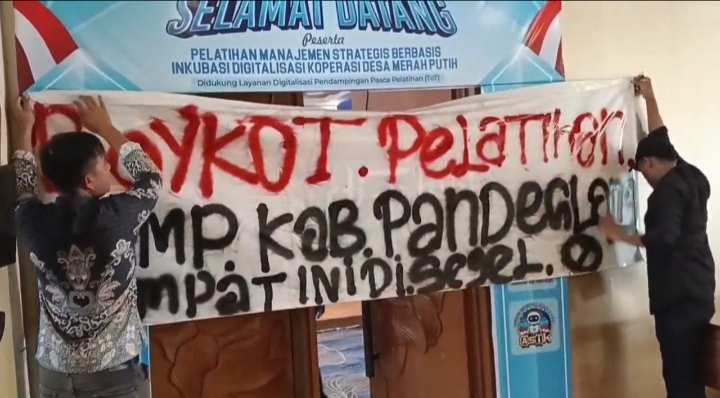 SELAMAT DATANG
Peserta
PELATIHAN MANAJEMEN STRATEGIS BERBASIS
INKUBASI DIGITALISASI KOPERASI DESA MERAH PUTIH
Didukung Layanan Digitalisasi Pendampingan Pasca Pelatihan (ToT)
BOYKOT. PELATIHAN.
MP. KAB. PANDEGLA
MPAT INI DI. SEGEL.
ASTIK